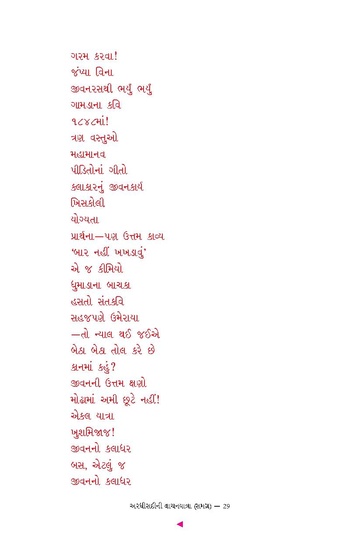 ગરમ કરવા!
જંપ્યા વિના
જીવનરસથી ભર્યું ભર્યું
ગામડાના કવિ
૧૮૪૮માં!
ત્રણ વસ્તુઓ
મહામાનવ
પીડિતોનાં ગીતો
કલાકારનું જીવનકાર્ય
ખિસકોલી
યોગ્યતા
પ્રાર્થના—પણ ઉત્તમ કાવ્ય
‘બાર નહીં ખખડાવું’
એ જ કીમિયો
ધુમાડાના બાચકા
હસતો સંતકવિ
સહજપણે ઉમેરાયા
—તો ન્યાલ થઈ જઈએ
બેઠા બેઠા તોલ કરે છે
કાનમાં કહું?
જીવનની ઉત્તમ ક્ષણો
મોઢામાં અમી છૂટે નહીં!
એકલ યાત્રા
ખુશમિજાજ!
જીવનનો કલાધર
બસ, એટલું જ
જીવનનો કલાધર
અરધીસદીની વાચનયાત્રા (સમગ્ર) — 29